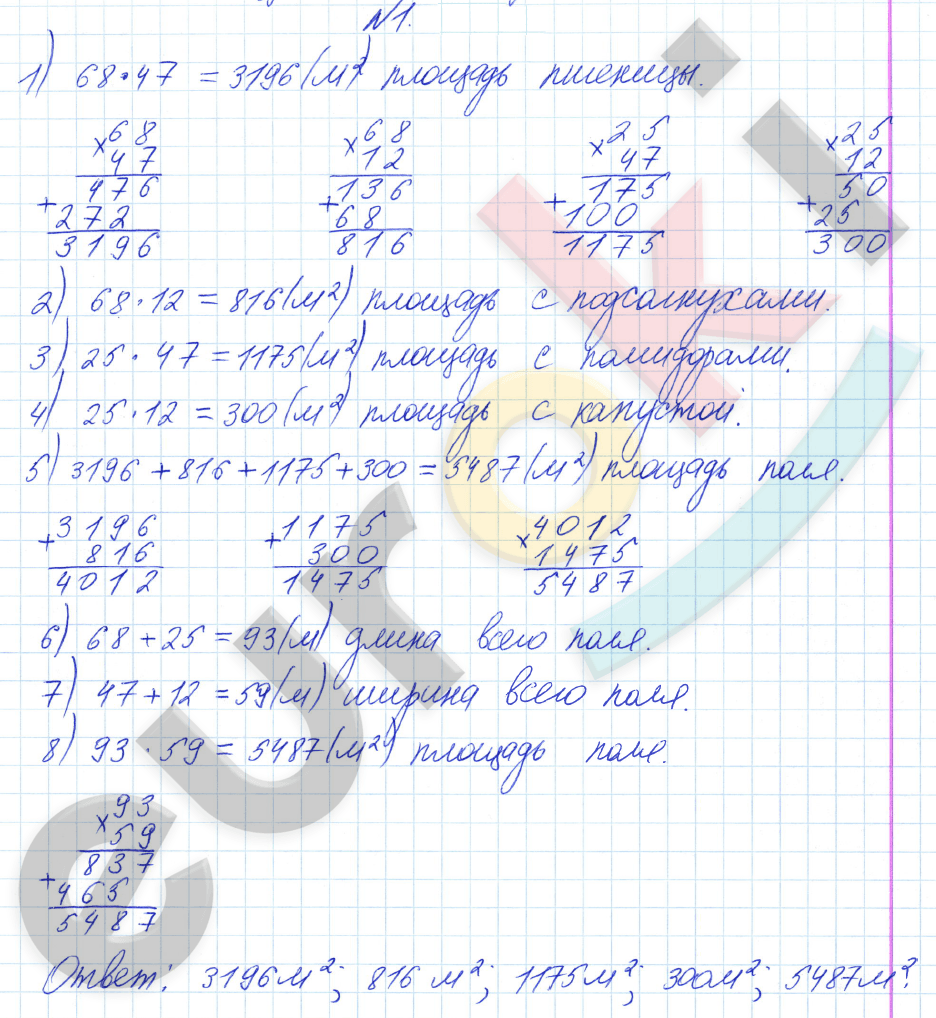 №1.
1) 68·47 = 3196(м²) площадь пшеницы.
×68 ×68 ×25 ×25
47 12 47 12
476 136 175 50
+272 +68 +100 +25
3196 816 1175 300
2) 68·12 = 816(м²) площадь с подсолнухами.
3) 25·47 = 1175(м²) площадь с помидорами.
4) 25·12 = 300(м²) площадь с капустой.
5) 3196 + 816 + 1175 + 300 = 5487(м²) площадь поля.
+3196 +1175 ×4012
816 300 1475
4012 1475 5487
6) 68 + 25 = 93(м) длина всего поля.
7) 47 + 12 = 59(м) ширина всего поля.
8) 93·59 = 5487(м²) площадь поля.
×93
59
837
+465
5487
Ответ: 3196м²; 816 м²; 1175м²; 300м²; 5487м².
euroki